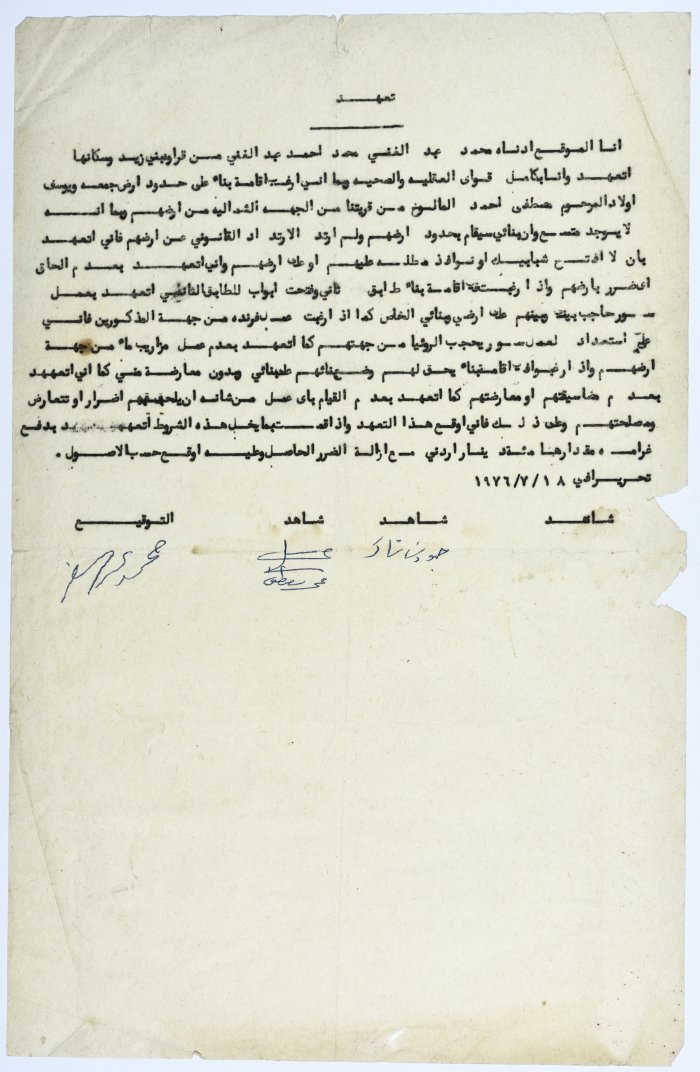 تعهد
انا الموقع ادناه محمد عبد الغني محمد احمد عبد الغني من قراوة بني زيد وسكانها
اتعهد وانا بكامل قواى العقليه والصحيه وبما اني ارغب اقامة بناء على حدود ارض جمعه ويوسف
اولاد المرحوم مصطفى احمد المالوخ من قريتنا من الجهه الشماليه من ارضهم وبما انه
لا يوجد متسع وان بنائي سيقام بحدود ارضهم ولم ارتد الارتداد القانوني عن ارضهم فاني اتعهد
بان لا افتح شبابيك او نوافذ مطله عليهم او على ارضهم واني اتعهد بعدم الحاق
اى ضرر بارضهم واذا رغبت في اقامة بناء طابق ثاني وفتحت ابواب للطابق الثاني اتعهد بعمل
سور حاجب بيني وبينهم على ارضي وبنائي الخاص كما اذا رغبت عمل فرنده من جهة المذكورين فاني
على استعداد لعمل سور يحجب الروئيا من جهتهم كما اتعهد بعدم عمل مزاريب ماء من جهة
ارضهم واذا رغبوا في اقامة بناء يحق لهم وضع بنائهم على بنائي وبدون معارضة مني كما اني اتعهد
بعدم مضايقتهم او معارضتهم كما اتعهد بعدم القيام باى عمل من شانه ان يلحق بهم اضرار او تتعارض
ومصلحتهم وعلى ذلك فاني اوقع هذا التعهد واذا قمت بما يخل هذه الشروط اتعهد بدفع
غرامه مقدارها مئة دينار اردني مع ازالة الضرر الحاصل وعليه اوقع حسب الاصول .
تحريرا في ١٨/٧/١٩٧٦
شاهد شاهد شاهد التوقيع